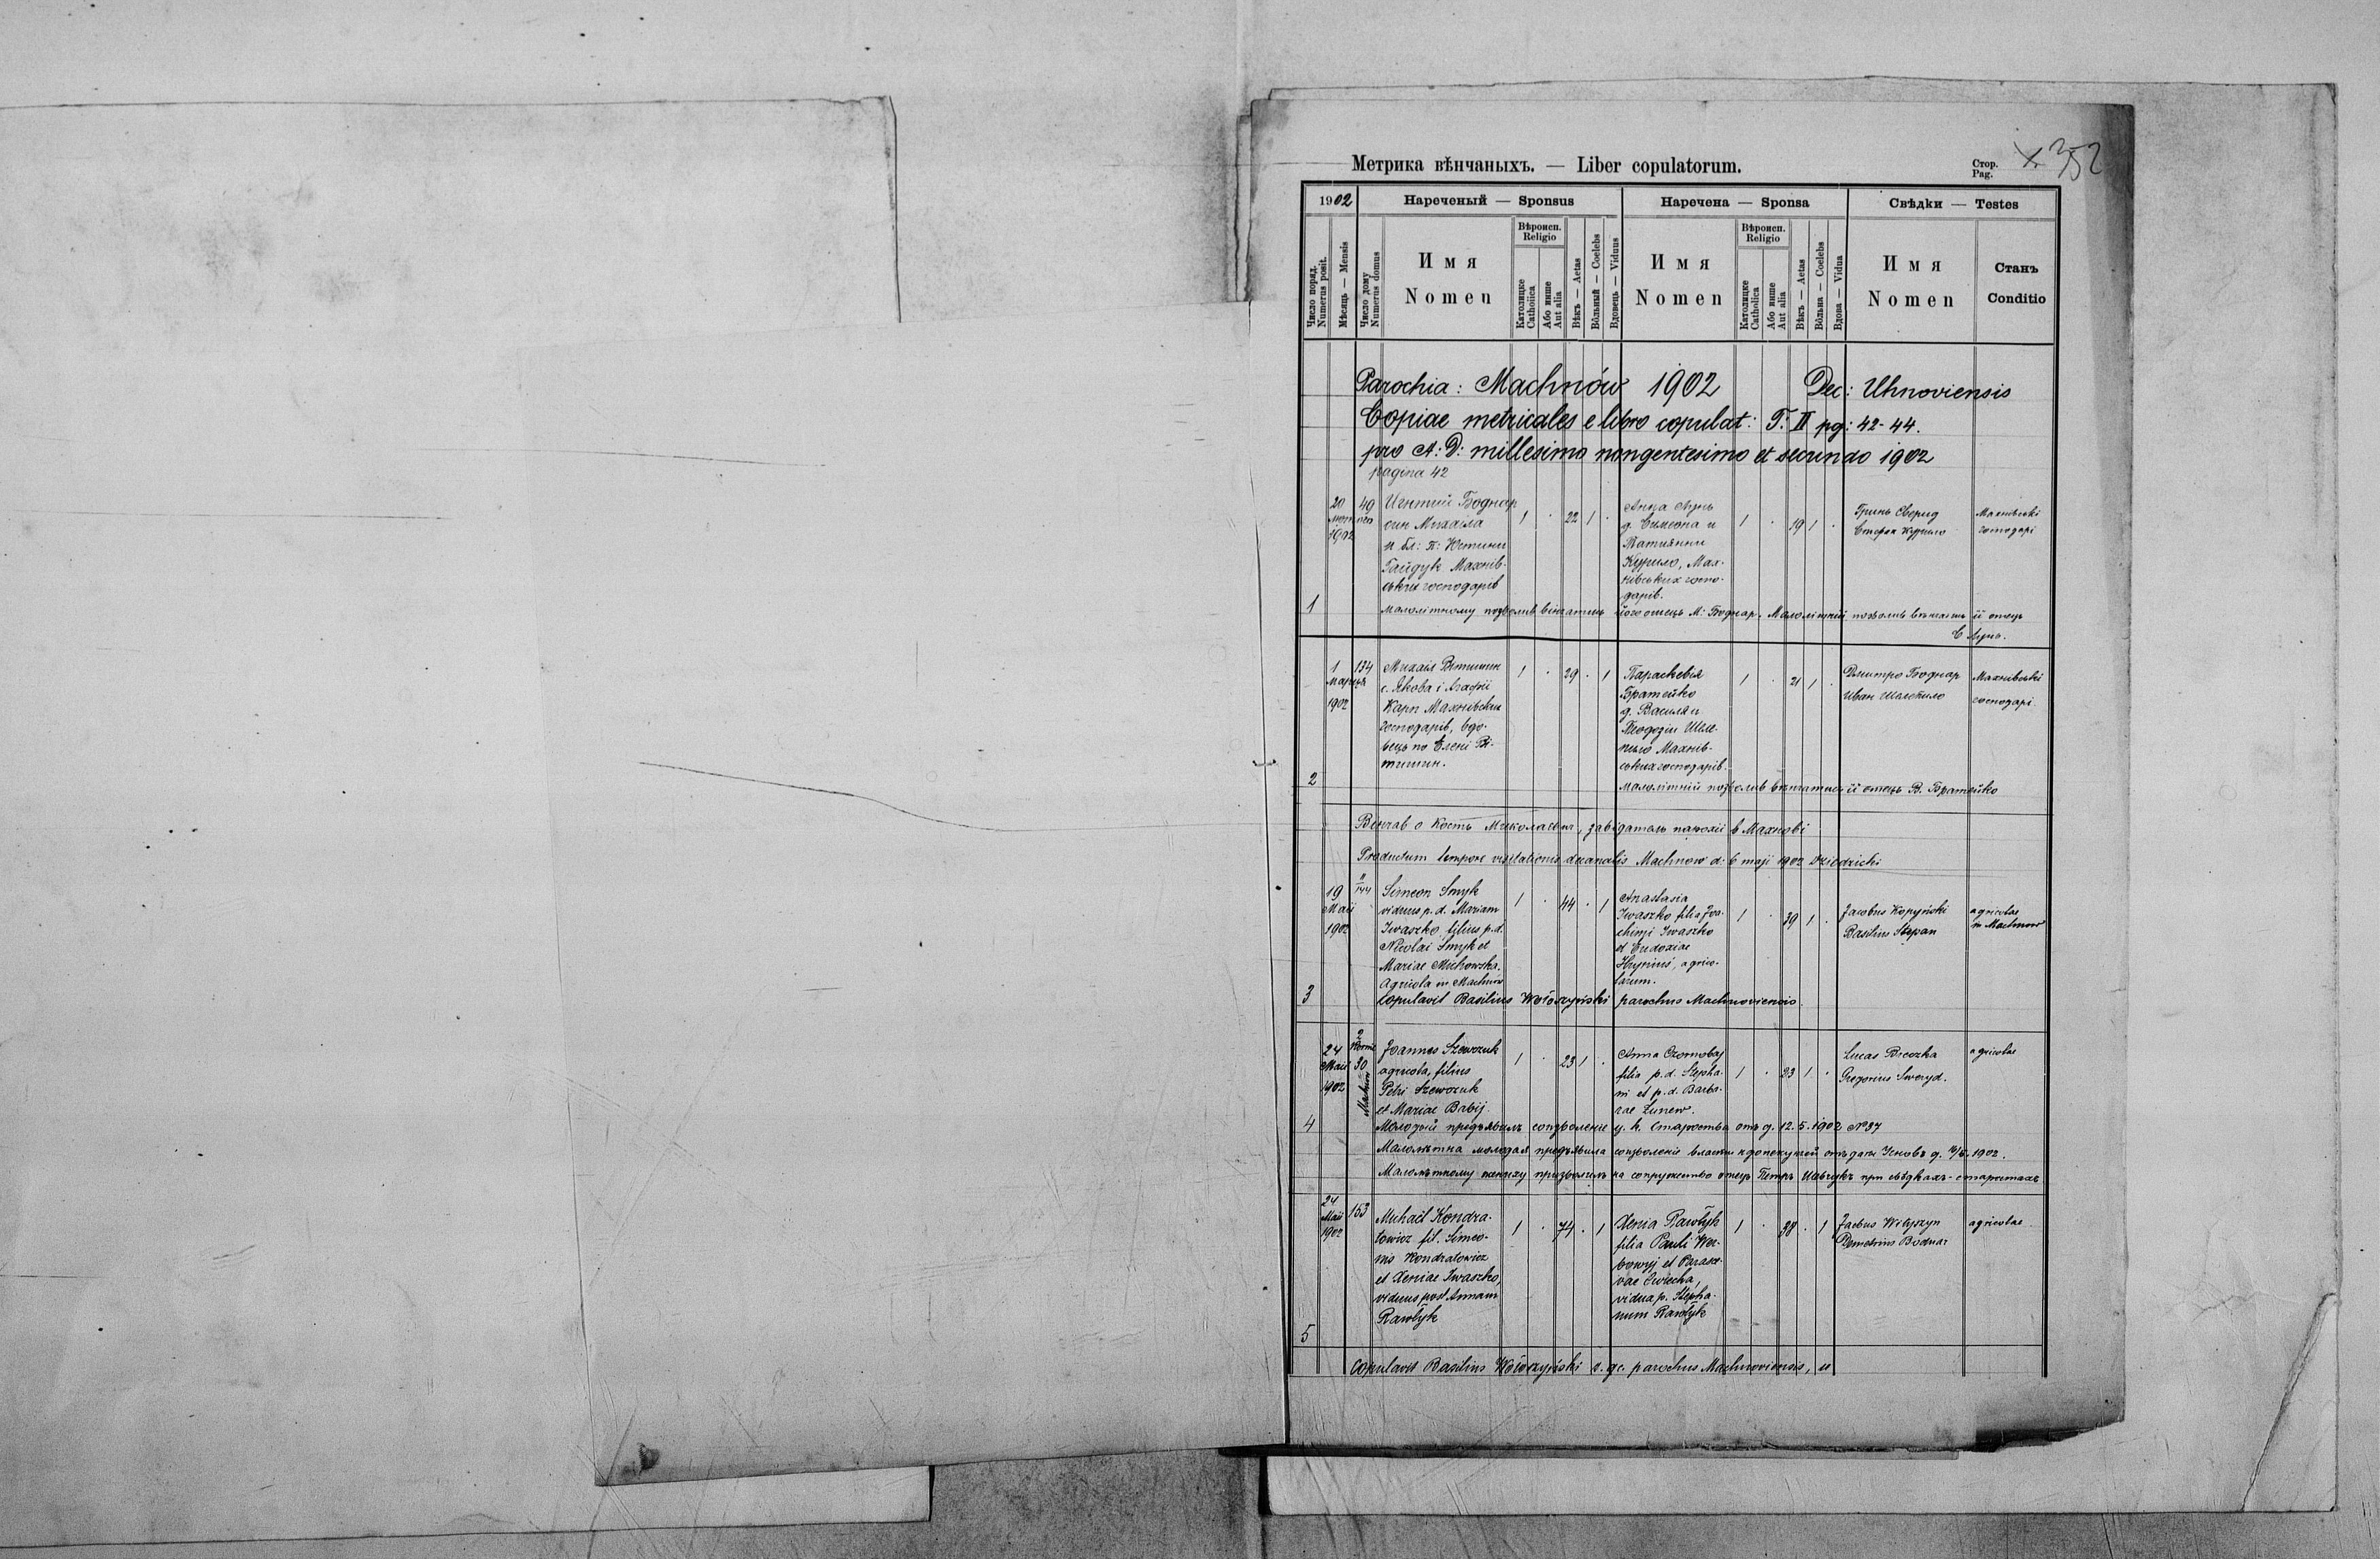 Метрика вѣнчаныхъ. — Liber copulatorum.
Стор.
Pag.
352
1902
Нареченый — Sponsus
Наречена — Sponsa
Свѣдки — Testes
Число поряд.
Numerus posit.
Мѣсяць — Mensis
Число дому
Numerus domus
Имя
Nomen
Вѣроисп.
Religio
Католицке
Catholica
Або инше
Aut alia
Вѣкъ — Aetas
Вôльный — Coelebs
Вдовець — Viduus
Имя
Nomen
Вѣроисп.
Religio
Католицке
Catholica
Або инше
Aut alia
Вѣкъ — Aetas
Вôльна — Coelebs
Вдова — Vidua
Имя
Nomen
Станъ
Conditio
Parochia: Machnów 1902 Dec: Uhnoviensis
Copiae metricales e libro copulat: T: II pg: 42-44.
pro A: D: millesimo nongentesimo et secundo 1902
pagina 42
1
20
лютого
1902
49
Боднар
син Михаіла
и бл: п: Юстини
Гайдук Махнів-
ських господарів
1 22 1
Анна
д. Симеона и
Курило, Мах-
нівських госпо-
дарів.
1 19 1
Гринь Сверид
Стефан Курило
Махнівскі
господарі
малолітному позволив вінчатись його отець М: Боднар. Малолітній позволив вінчатись її отець
С
2
1
Марця
1902
134
Михаіл Вітишин
с. Якова і Агафії
Карп Махнівских
господарів, вдо-
вець по Елені Ві-
тишин.
1 29 1
Параскевія
Братейко
д. Василя и
Теодозіи Шле-
Махнів-
ських господарів.
1 21 1
Дмитро Боднар
Иван
Махнівскі
господарі
малолітній позволив вінчатись її отець В. Братейко
Вінчав о Кость Миколаєвич, завідатель парохії в Махнові
Productum tempore visitationis decanalis Machnow d: 6 maji 1902 Dziedzicki
3
19
Maii
1902
144
Simeon Smyk
viduus p. d. Mariam
Iwaszko filius p. d.
Nicolai Smyk et
Mariae Michowska.
Agricola in Machnów
1 44 1
Anastasia
Iwaszko filia Joa-
chimi Iwaszko
et Eudoxiae
agrico-
larum.
1 39 1
Jacobus Kopyński
Basilius Stepan
agricolae
in Machnow
copulavit Basilius Wołoszyński parochus Machnoviensis.
4
24
Maii
1902
2
Kornie
30
Machnów
Joannes Szewczuk
agricola, filius
Petri Szewczuk
et Mariae Babij.
1 23 1
Anna Czornobaj
filia p. d. Stepha-
ni et p. d. Barba-
rae Łunew.
1 23 1
Lucas Breczka
Gregorius Sweryd.
agricolae
Молодый предъявилъ соизволеніе ц. к. Староства отъ д. 12. 5. 1902 №37
Малолѣтна молодая предъявила соизволеніе власти надопекунчой отъ дати Угновъ д. 1902.
Малолѣтному жениху призволилъ на супружество отець Петръ Шевчукъ при свѣдкахъ-старостахъ
5
24
Maii
1902
153
Michaël Kondra-
towicz fil. Simeo-
nis Kondratowicz
et Xeniae Iwaszko,
viduus post Annam
Pawłyk
1 74 1
Xenia Pawłyk
filia Pauli Wer-
bowyj et Parasce-
vae Cwiecha,
vidua p. Stepha-
num Pawłyk
1 38 1
Jacobus Wityszyn
Demetrius Bodnar
agricolae
copulavit Basilius Wołoszyński r. gc. parochus Machnoviensis,